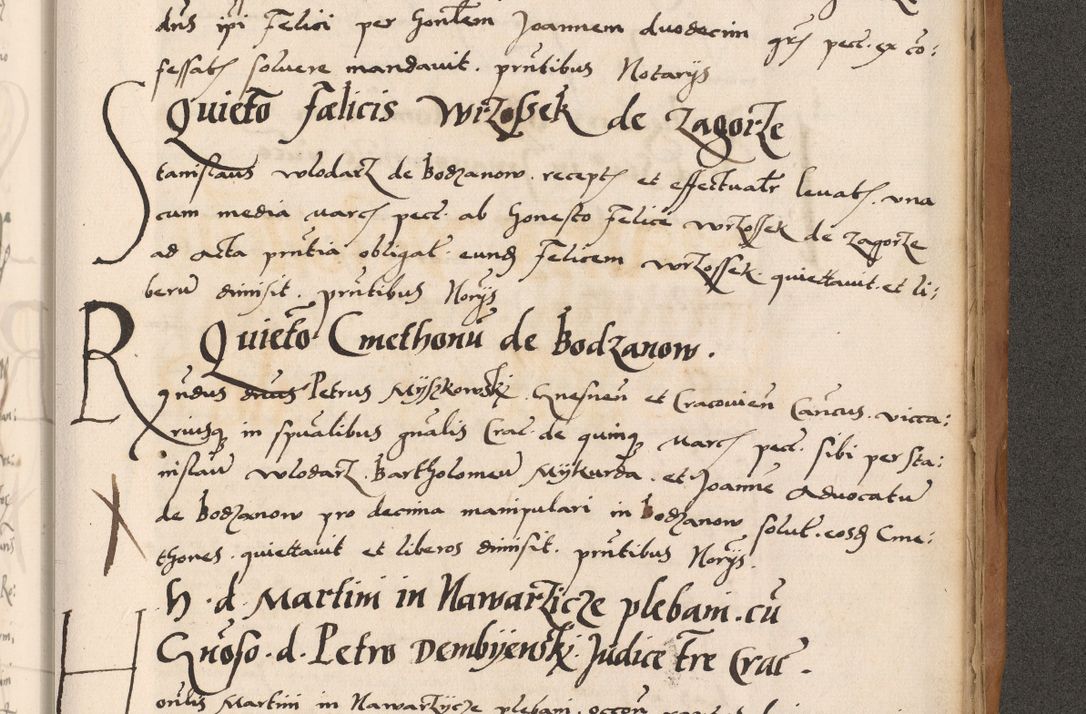 dns ipi Felici per honlem Joannem duodecim grs pect. ex co:
fessats solvere mandavit. pntibus Notarijs
Quietō Fælicis Wrzossek de Zagorze
Stanislaus wlodarz de Bodzanow. recepts et effectualr levats. una
cum media marcs pect. ab honesto Felice Wrzossek de Zagorze
ad acta pntia obligat. eund Felicem Wrzossek. quiettavit. et li:
berū dimisit. pntibus Norijs
Quietō Cmethonū de Bodzanow.
Rndus dnus Petrus Myszkowski. Gnesnen et Cracovien Cancus. vicca:
riusq in spualibus gnalis Crac. de quinq marcs pect. sibi per Sta:
nislaū wlodarz. Bartholomeū Mykurda. et Joannē Advocatū
de Bodzanow pro decima manipulari in Bodzanow solut. eosd Cme:
thones. quiettavit et liberos dimisit. pntibus Norijs.
H. d. Martini in Nawarzicze plebani. cū
Gnōso. d. Petro Dembijenski. Judice tre Crac.
Honlis Martini in Nawarzycze plebani.